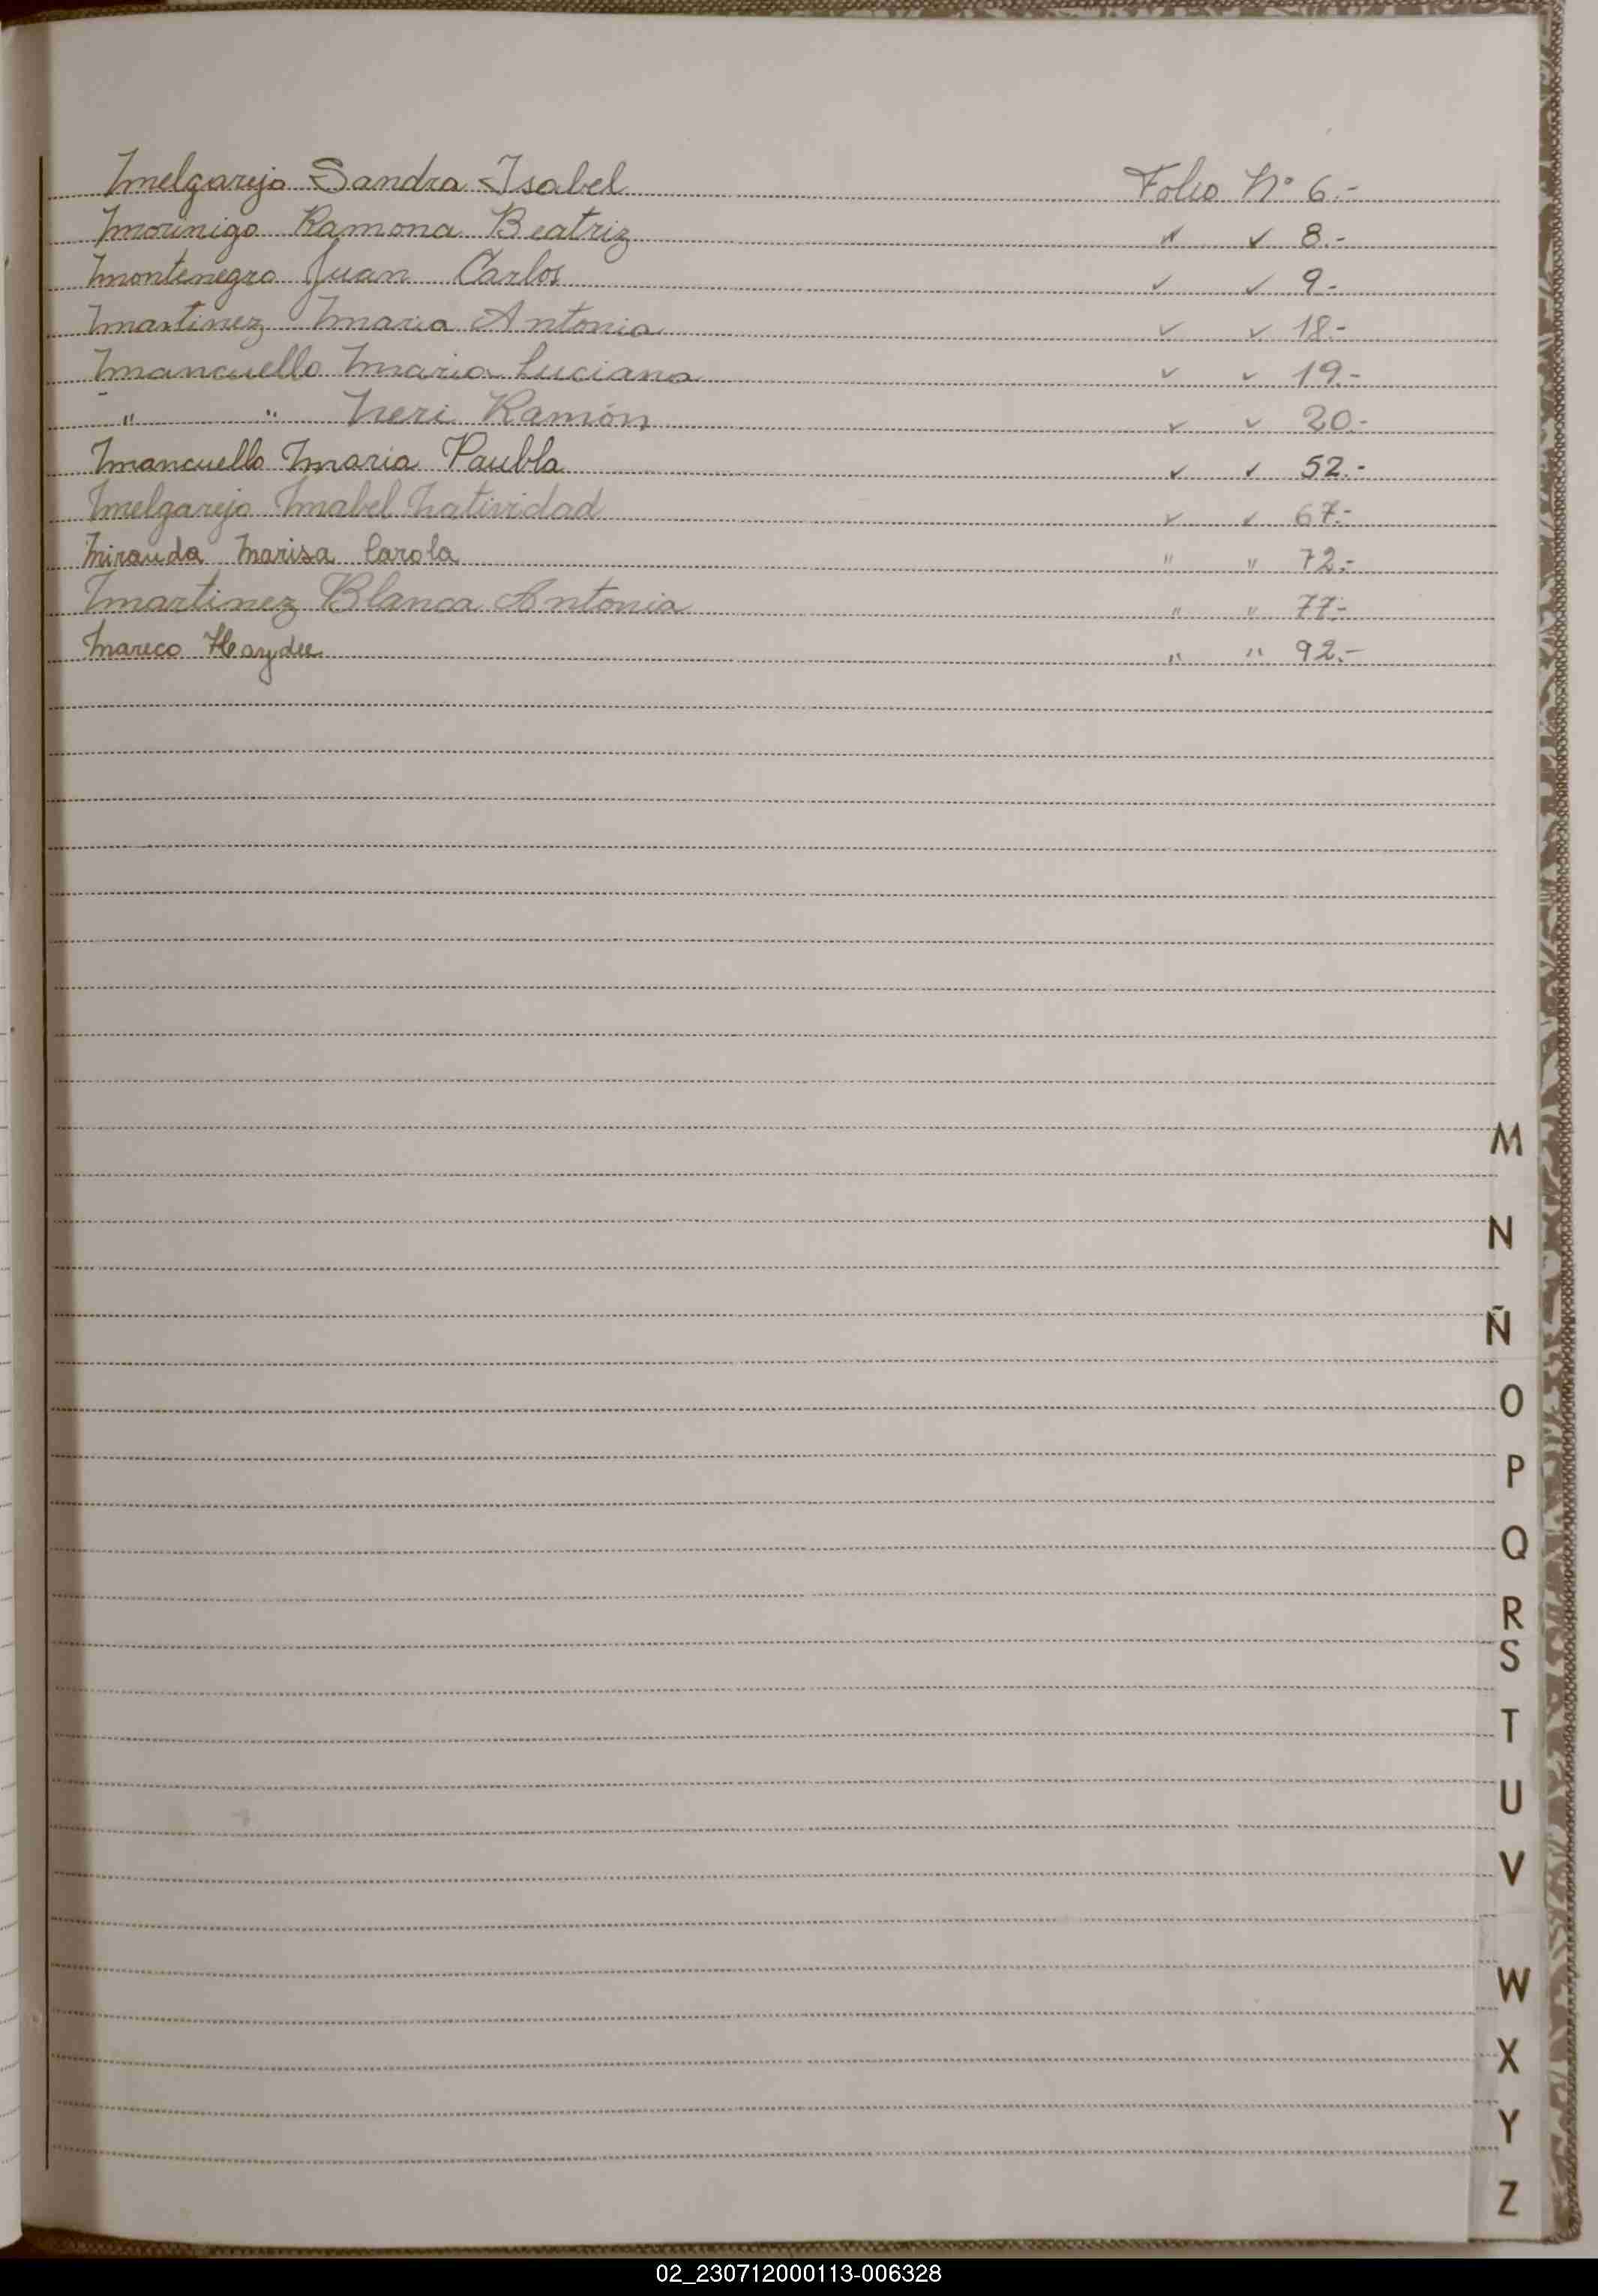 Melgarejo Sandra Isabel Folio Nº 6.-
Morinigo Ramona Beatriz " ✓ 8.-
Montenegro Juan Carlos ✓ ✓ 9.-
Martinez Maria Antonia ✓ ✓ 18.-
Mancuello Maria Luciana ✓ ✓ 19.-
" " Neri Ramón ✓ ✓ 20.-
Mancuello Maria Paubla ✓ ✓ 52.-
Melgarejo Mabel Natividad ✓ ✓ 67.-
Miranda Marisa Carola " " 72.-
Martinez Blanca Antonia " " 77.-
Mareco Haydee " " 92.-
M
N
Ñ
O
P
Q
R
S
T
U
V
W
X
Y
Z
02_230712000113-006328